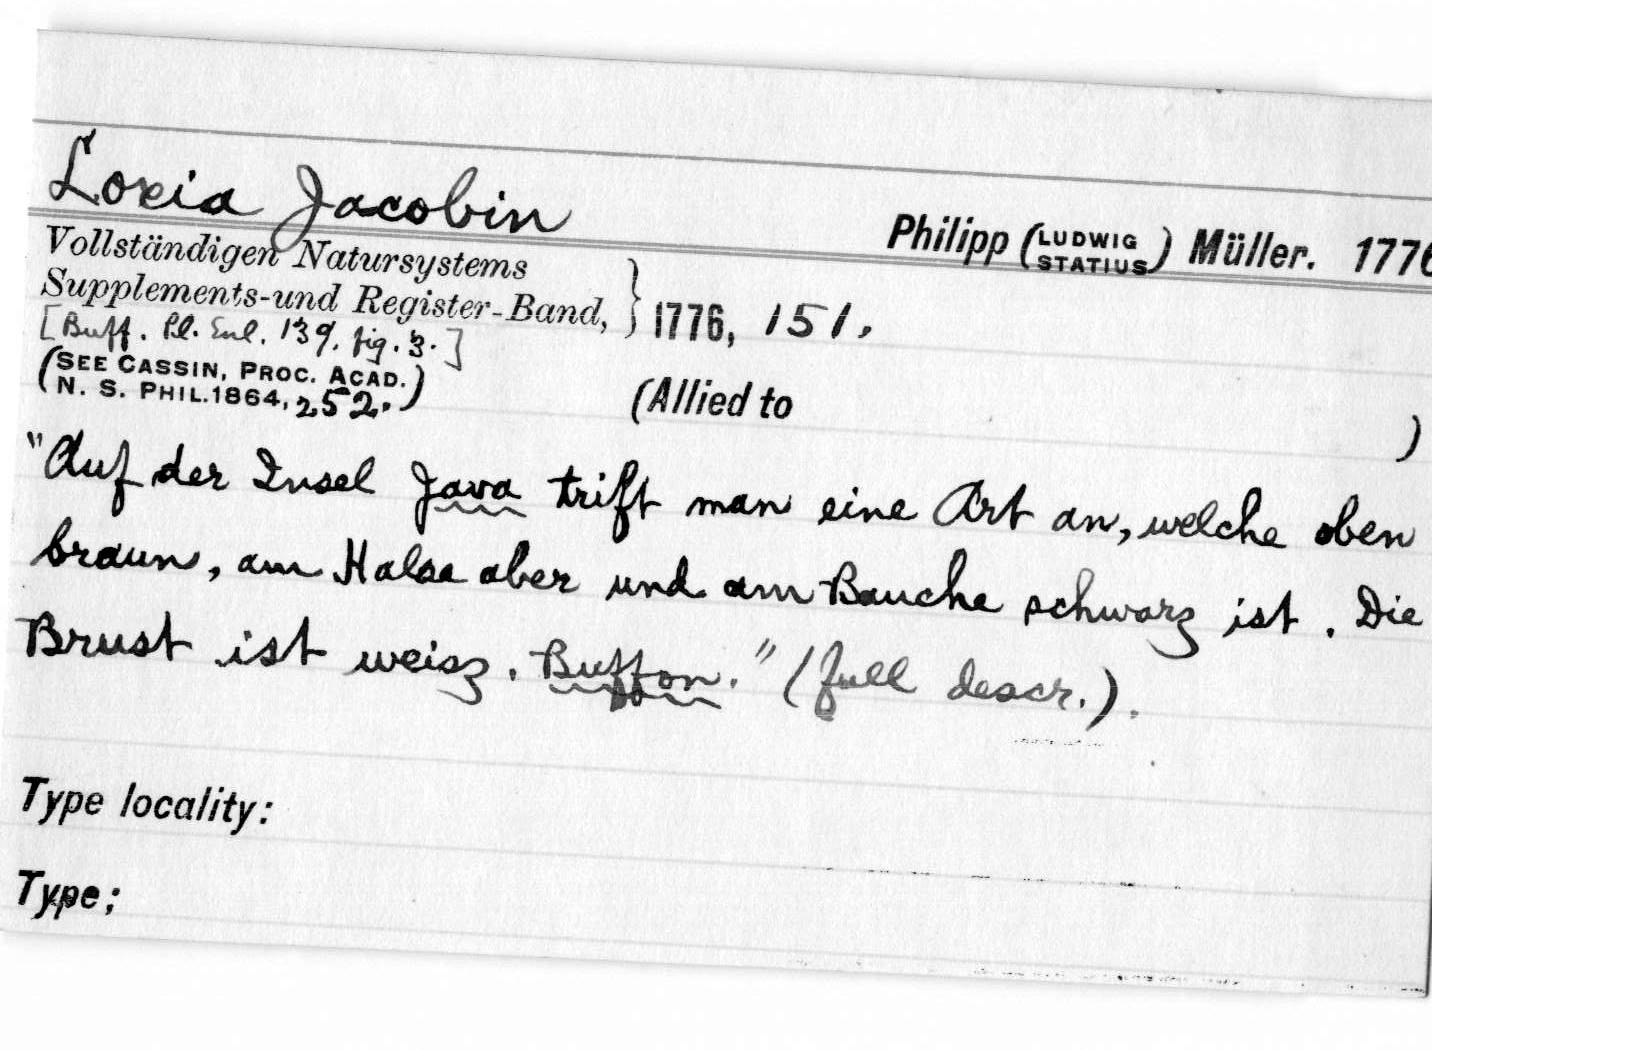 Loxia Jacobin
Philipp (LUDWIG STATIUS) Müller. 1776
Vollständigen Natursystems
Supplements-und Register-Band, } 1776, 151.
[Buff. Pl. Enl. 139, fig. 3.]
(SEE CASSIN, PROC. ACAD.
N. S. PHIL. 1864, 252.)
(Allied to )
"Auf der Insel Java trift man eine Art an, welche oben
braun, am Halse aber und am Bauche schwarz ist. Die
Brust ist weisz. Buffon." (full descr.).
Type locality:
Type;